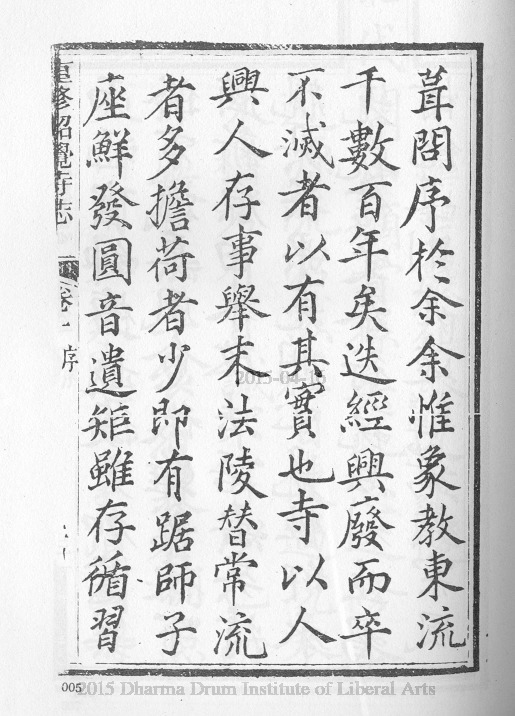 葺問序於余余惟象教東流
千數百年矣迭經興廢而卒
不滅者以有其實也寺以人
興人存事舉末法陵替常流
者多擔荷者少即有踞師子
座鮮發圓音遺矩雖存循習
重修昭覺寺志
卷一 序
2015-04-16
005
2015 Dharma Drum Institute of Liberal Arts